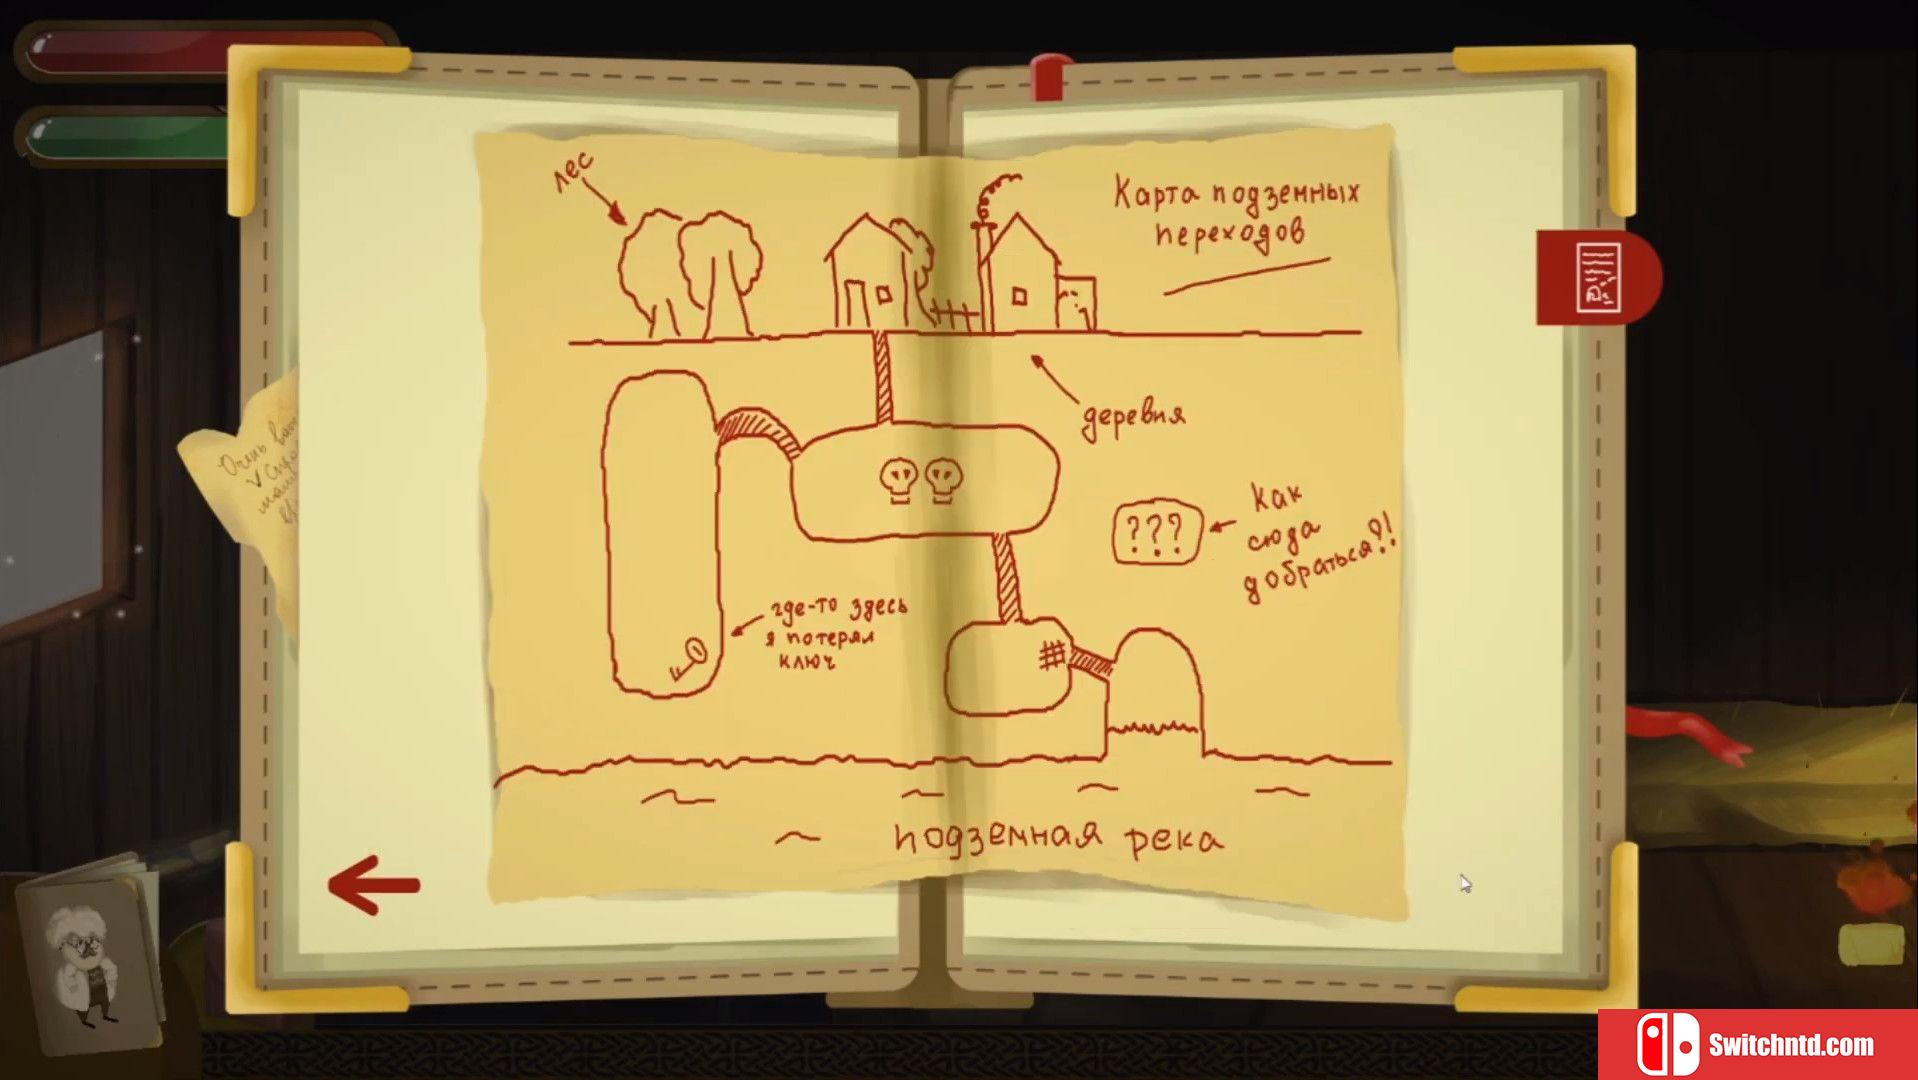 лес
Карта подземных
переходов
деревня
???
Как
сюда
добраться?!
где-то здесь
я потерял
ключ
подземная река
Очень
Switchntd.com